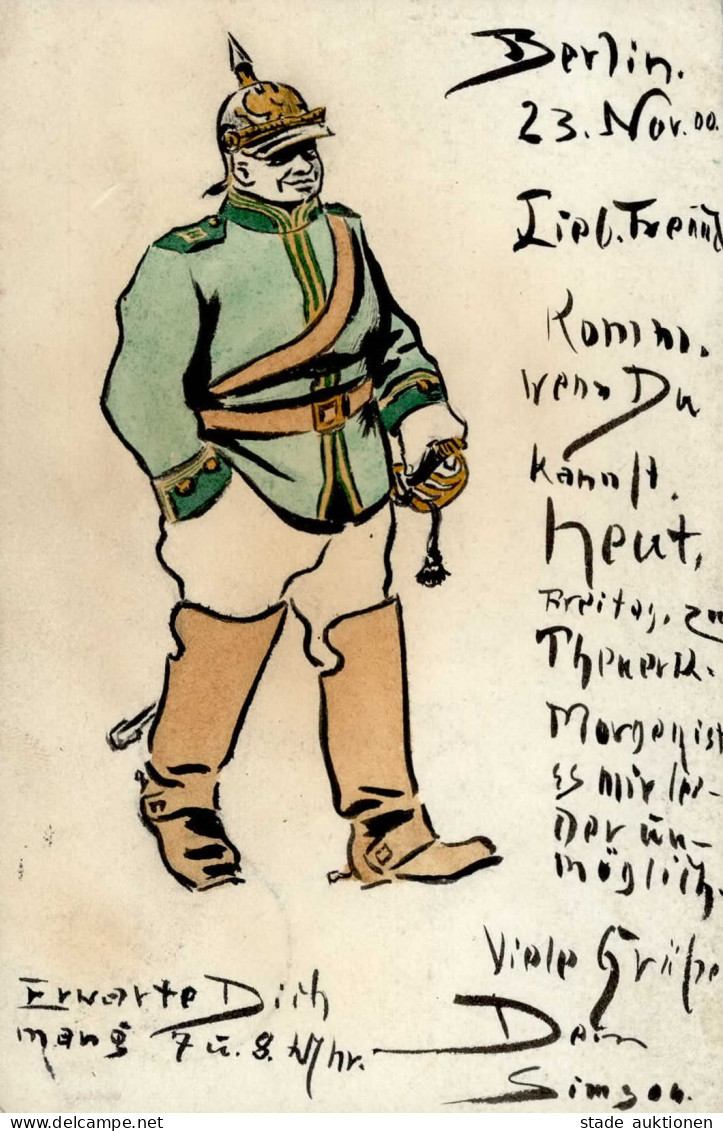 Berlin.
23. Nov. 00.
Lieb. Freund
Komm,
wenn Du
kannst.
heut,
Freitag, zu
Morgen ist
es mir lei-
der un-
möglich.
Viele Grüße
Dein
Simson.
Erwarte Dich
mang 7 u. 8. Uhr.
stade auktionen